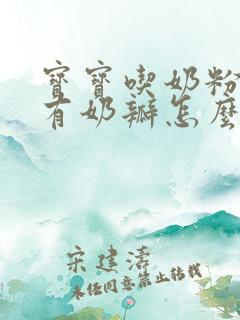 寶寶喫奶粉
有奶瓣怎麽
宋建濤
未经同意禁止转载